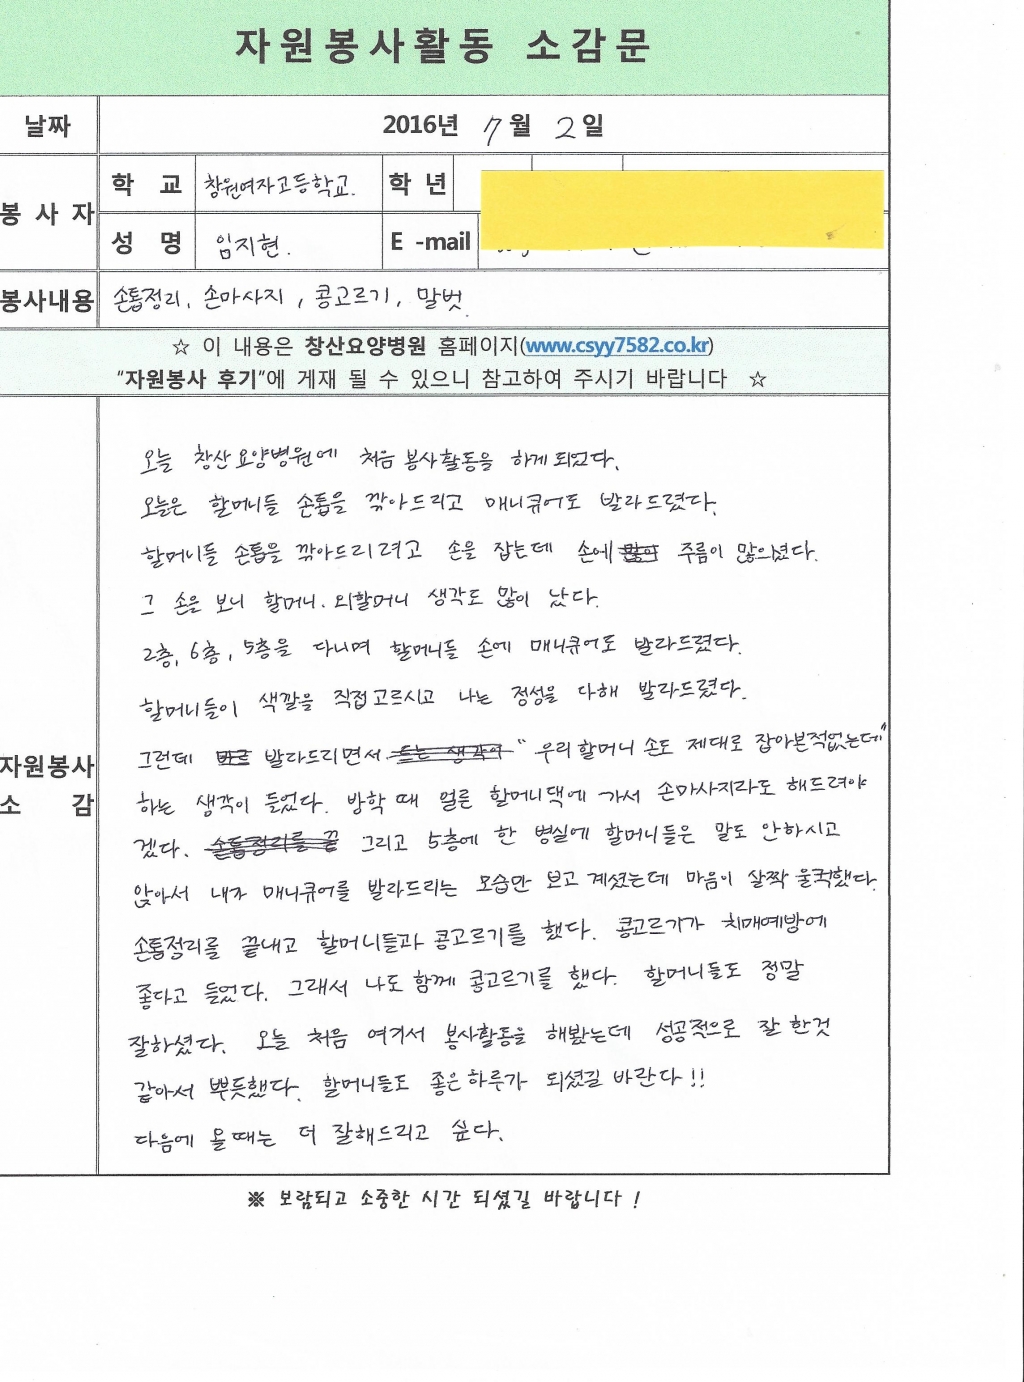 자원봉사활동 소감문
날짜 2016년 7월 2일
봉 사 자
학 교 창원여자고등학교. 학 년
성 명 임지현. E -mail
봉사내용 손톱정리, 손마사지, 콩고르기, 말벗
☆ 이 내용은 창산요양병원 홈페이지(www.csyy7582.co.kr)
"자원봉사 후기"에 게재 될 수 있으니 참고하여 주시기 바랍니다 ☆
자원봉사
소 감
오늘 창산요양병원에 처음 봉사활동을 하게 되었다.
오늘은 할머니들 손톱을 깎아드리고 매니큐어도 발라드렸다.
할머니들 손톱을 깎아드리려고 손을 잡는데 손에 주름이 많으셨다.
그 손을 보니 할머니. 외할머니 생각도 많이 났다.
2층, 6층, 5층을 다니며 할머니들 손에 매니큐어도 발라드렸다.
할머니들이 색깔을 직접고르시고 나는 정성을 다해 발라드렸다.
그런데 발라드리면서 "우리할머니 손도 제대로 잡아본적없는데"
하는 생각이 들었다. 방학 때 얼른 할머니댁에 가서 손마사지라도 해드려야
겠다. 그리고 5층에 한 병실에 할머니들은 말도 안하시고
앉아서 내가 매니큐어를 발라드리는 모습만 보고 계셨는데 마음이 살짝 울컥했다.
손톱정리를 끝내고 할머니들과 콩고르기를 했다. 콩고르기가 치매예방에
좋다고 들었다. 그래서 나도 함께 콩고르기를 했다. 할머니들도 정말
잘하셨다. 오늘 처음 여기서 봉사활동을 해봤는데 성공적으로 잘 한것
같아서 뿌듯했다. 할머니들도 좋은하루가 되셨길 바란다!!
다음에 올때는 더 잘해드리고 싶다.
※ 보람되고 소중한 시간 되셨길 바랍니다!